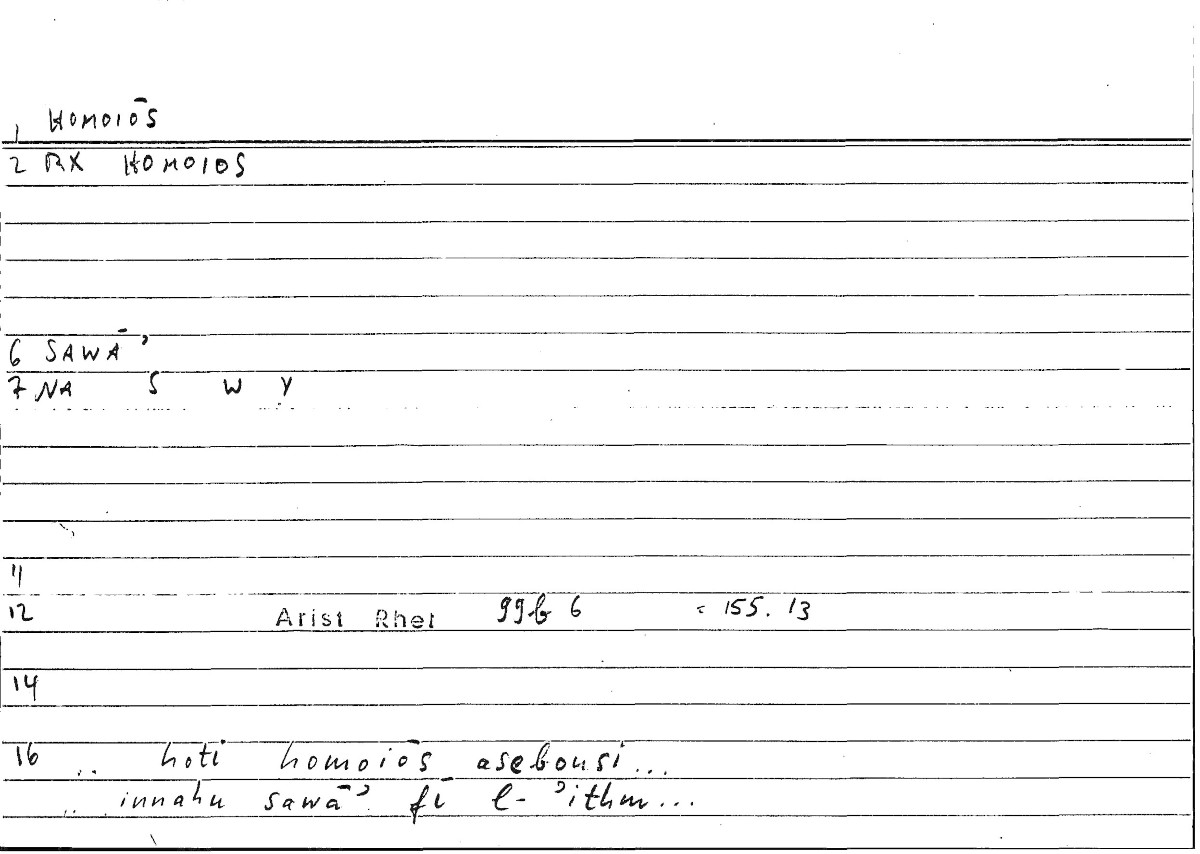 1 HOMOIŌS
2 RX HOMOIOS
6 SAWĀʾ
7 NA S W Y
11
12 Arist Rhet 99b 6 = 155.13
14
16 .. hoti homoiōs asebousi...
.. innahu sawāʾ fī l-ʾithm...